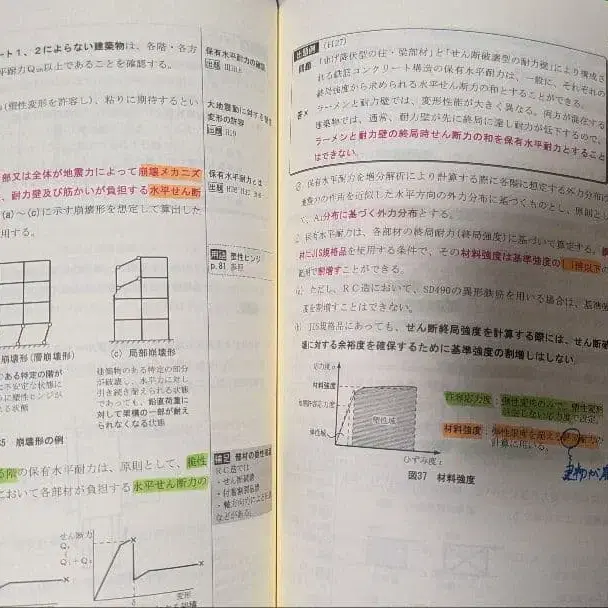 ート1、2によらない建築物は、各階・各方
以上であることを確認する。
(塑性変形を許容し)、粘りに期待するとい
部又は全体が地震力によって崩壊メカニズ
、耐力壁及び筋かいが負担する水平せん断
(a)～(c)に示す崩壊形を想定して算出した
用する。
崩壊形(層崩壊形)
ある特定の階が
(c) 局部崩壊形
建築物のある特定の部分
が破壊し、水平力に対し
引き続き耐えられる状態
であっても、鉛直荷重に
対して架構の一部が耐え
られなくなる状態
35 崩壊形の例
の保有水平耐力は、原則として、
において各部材が負担する水平せん断力の
せん断力
変形
保有水平耐力の確認
大地震動に対する
変形の許容
出題 H19
保有水平耐力とは
塑性ヒンジ
p.81 参照
・せん断破壊
・付着割裂破壊
などがある。
出題例 (H27)
問題 「曲げ降伏型の柱・梁部材」と「せん断破壊型の耐力壁」により構成さ
れる鉄筋コンクリート構造の保有水平耐力は、一般に、それぞれの
終局強度から求められる水平せん断力の和とすることができる。
答× ラーメンと耐力壁では、変形性能が大きく異なる。両方が混在する
建築物では、通常、耐力壁が先に終局に達し耐力が低下するので、
ラーメンと耐力壁の終局時せん断力の和を保有水平耐力とすること
はできない。
保有水平耐力を増分解析により計算する際に各階に想定する外力分布は
地震力の作用を近似した水平方向の外力分布に基づくものとし、原則とし
て、Ai分布に基づく外力分布とする。
保有水平耐力は、各部材の終局耐力(終局強度)に基づいて算定する。
材にJIS規格品を使用する条件で、その材料強度は基準強度の1.1倍以下の
範囲で割増すことができる。
ただし、RC造において、SD490の異形鉄筋を用いる場合は、基準強
度を割増すことはできない。
JIS規格品にあっても、せん断終局強度を計算する際には、せん断破
壊に対する余裕度を確保するために基準強度の割増しはしない。
応力度σ
材料強度
短期許容応力度
弾性域
塑性域
ひずみ度ε
図37 材料強度
許容応力度：弾性変形のみで、塑性変形
材料強度：弾性変形を超える
計算に用いる。